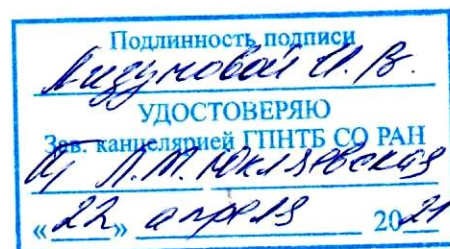 Подлинность подписи
Лизуновой И. В.
УДОСТОВЕРЯЮ
Зав. канцелярией ГПНТБ СО РАН
Л.М.
«22» апреля 2021